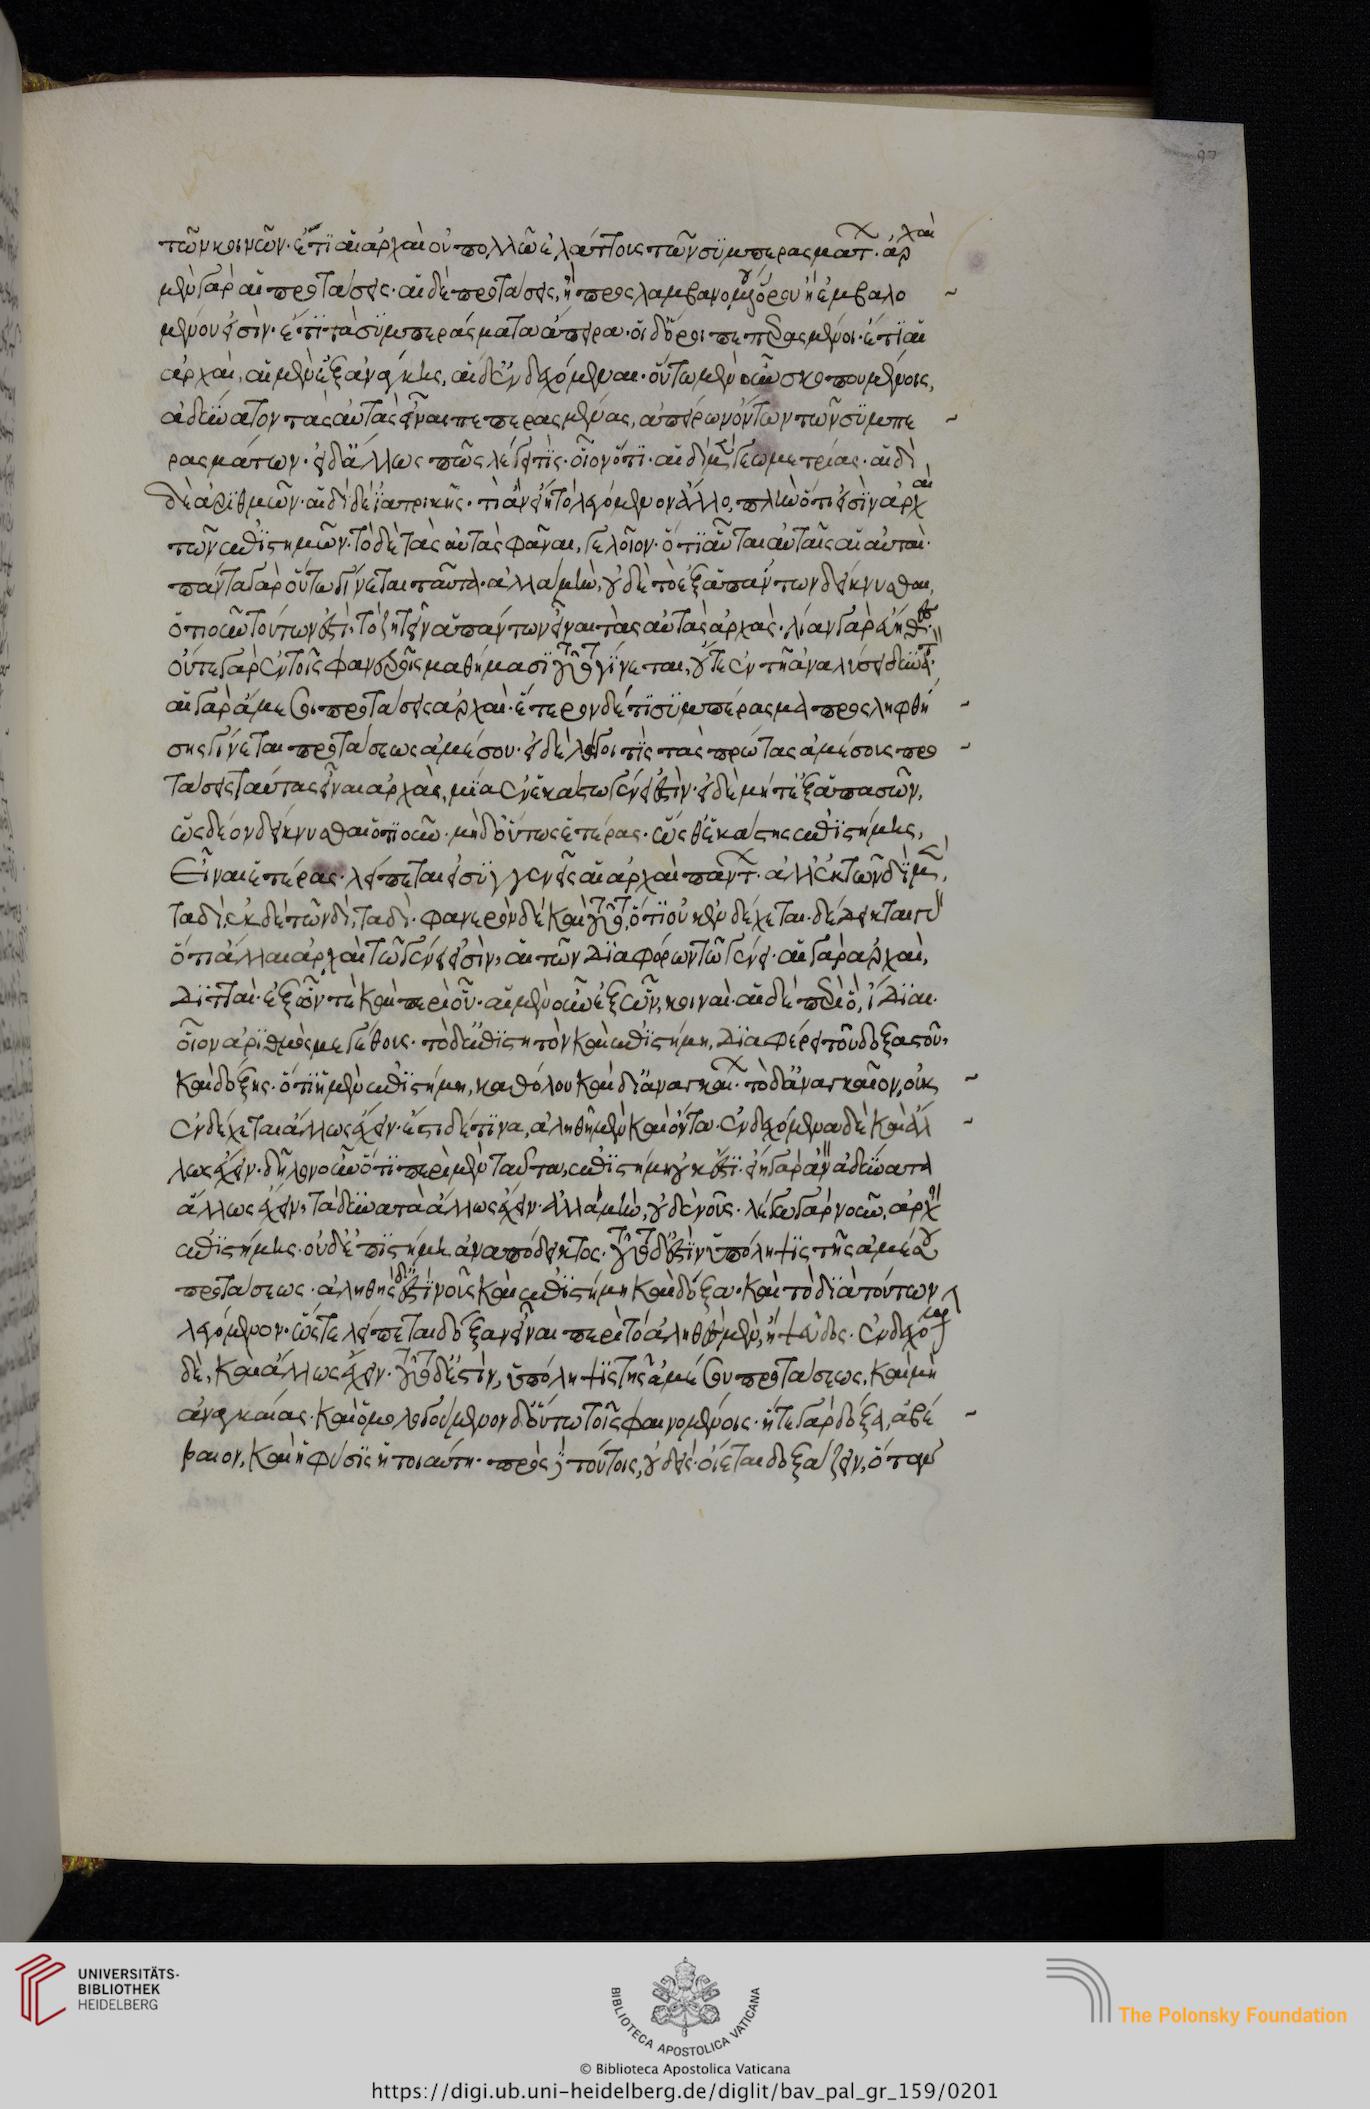 τῶν κοινῶν· ἔτι αἱ ἀρχαὶ οὐ πολλῶ ἐλάττους τῶν συμπερασματ· ἀρχαὶ
μὲν γὰρ αἱ προτάσεις· αἱ δὲ προτάσεις, ἢ προσλαμβανομένου ὅρου ἢ ἐμβαλο
μένου εἰσίν· ἔτι τὰ συμπεράσματα ἄπειρα· οἱ δ' ὅροι πεπερασμένοι· ἔτι αἱ
ἀρχαὶ, αἱ μὲν ἐξ ἀνάγκης, αἱ δ' ἐνδεχόμεναι· οὕτω μὲν οὖν σκοπουμένοις,
ἀδύνατον τὰς αὐτὰς εἶναι πεπερασμένας, ἀπείρων ὄντων τῶν συμπε
ρασμάτων· εἰ δ' ἄλλως πως λέγει τίς· οἷον ὅτι· αἱ δὶ μὲν γεωμετρίας· αἱ δὶ
δὲ ἀριθμῶν· αἱ δὶ δὲ ἰατρικῆς· τί ἂν εἴη τὸ λεγόμενον ἄλλο, πλὴν ὅτι εἰσὶν ἀρχαὶ
τῶν ἐπιστημῶν· τὸ δὲ τὰς αὐτὰς φάναι, γελοῖον· ὅτι αὗται αὑταῖς αἱ αὐταὶ·
πάντα γὰρ οὕτω γίνεται ταὐτά· ἀλλὰ μὴν, οὐδὲ τὸ ἐξ ἁπάντων δείκνυσθαι,
ὁτιοῦν τούτων ἐστὶ, τὸ ζητεῖν ἁπάντων εἶναι τὰς αὐτὰς ἀρχάς· λίαν γὰρ εὔηθες·
οὔτε γὰρ ἐν τοῖς φανεροῖς μαθήμασι τοῦτο γίνεται, οὔτε ἐν τῆ ἀναλύσει δυνατ·
αἱ γὰρ ἄμεσοι προτάσεις ἀρχαί· ἕτερον δέ τι συμπέρασμα προσληφθεί
σης γίνεται προτάσεως ἀμέσου· εἰ δὲ λέγοι τὶς τὰς πρώτας ἀμέσους προ
τάσεις ταύτας εἶναι ἀρχὰς, μία ἐν ἑκάστω γένει ἐστίν· εἰ δὲ μήτε ἐξ ἁπασῶν,
ὡς δέον δείκνυσθαι ὁτιοῦν· μηδ' οὕτως ἑτέρας· ὡς θ' ἑκάστης ἐπιστήμης,
Εἶναι ἑτέρας· λείπεται εἰ συγγενεῖς αἱ ἀρχαὶ παντ· ἀλλ' ἐκ τῶν δὶ μὲν,
ταδὶ, ἐκ δὲ τῶν δὶ, ταδὶ· φανερὸν δὲ καὶ τοῦτο, ὅτι οὐκ ἐνδέχεται· δέδεικται γὰρ
ὅτι ἄλλαι ἀρχαὶ τῶ γένει εἰσὶν, αἱ τῶν διαφόρων τῶ γένει· αἱ γὰρ ἀρχαὶ,
διτταὶ· ἐξ ὧν τὲ καὶ περὶ οὗ· αἱ μὲν οὖν ἐξ ὧν, κοιναὶ· αἱ δὲ περὶ ὃ, ἴδιαι·
οἷον ἀριθμὸς μέγεθος· τὸ δ' ἐπιστητὸν καὶ ἐπιστήμη, διαφέρει τοῦ δοξαστοῦ,
καὶ δόξης· ὅτι ἡ μὲν ἐπιστήμη, καθόλου καὶ δι' ἀναγκαί· τὸ δ' ἀναγκαῖον, οὐκ
ἐνδέχεται ἄλλως ἔχειν· ἔστι δέ τινα, ἀληθῆ μὲν καὶ ὄντα· ἐνδεχόμενα δὲ καὶ ἄλ
λως ἔχειν· δῆλον οὖν ὅτι περὶ μὲν ταῦτα, ἐπιστήμη οὐκ ἔστι· εἴη γὰρ ἂν ἀδύνατα
ἄλλως ἔχειν, τὰ δυνατὰ ἄλλως ἔχειν· ἀλλὰ μὴν, οὐδὲ νοῦς· λέγω γὰρ νοῦν, ἀρχὴν
ἐπιστήμης· οὐδ' ἐπιστήμη ἀναπόδεικτος· τοῦτο δ' ἐστὶν ὑπόληψις τῆς ἀμέσου
προτάσεως· ἀληθὴς δ' ἐστὶ νοῦς καὶ ἐπιστήμη καὶ δόξα· καὶ τὸ διὰ τούτων
λεγόμενον· ὥστε λείπεται δόξαν εἶναι περὶ τὸ ἀληθὲς μὲν, ἢ ψεῦδος· ἐνδεχόμενον
δὲ, καὶ ἄλλως ἔχειν· τοῦτο δ' ἐστὶν, ὑπόληψις τῆς ἀμέσου προτάσεως, καὶ μὴ
ἀναγκαίας· καὶ ὁμολογούμενον δ' οὕτω τοῖς φαινομένοις· ἥτε γὰρ δόξα, ἀβέ
βαιον, καὶ ἡ φύσις ἡ τοιαύτη· πρὸς δὲ τούτοις, οὐδεὶς οἴεται δοξάζειν, ὅταν
UNIVERSITÄTS-
BIBLIOTHEK
HEIDELBERG
BIBLIOTECA APOSTOLICA VATICANA
The Polonsky Foundation
© Biblioteca Apostolica Vaticana
https://digi.ub.uni-heidelberg.de/diglit/bav_pal_gr_159/0201